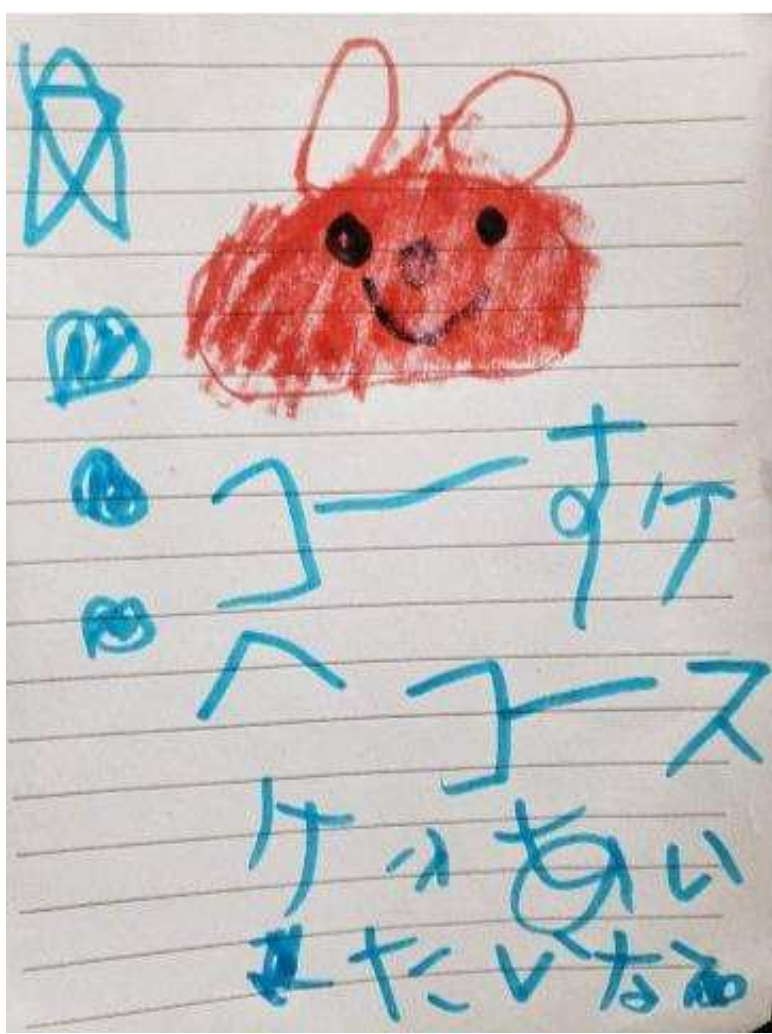 コーすケ
へコース
ケにあい
またいなあ